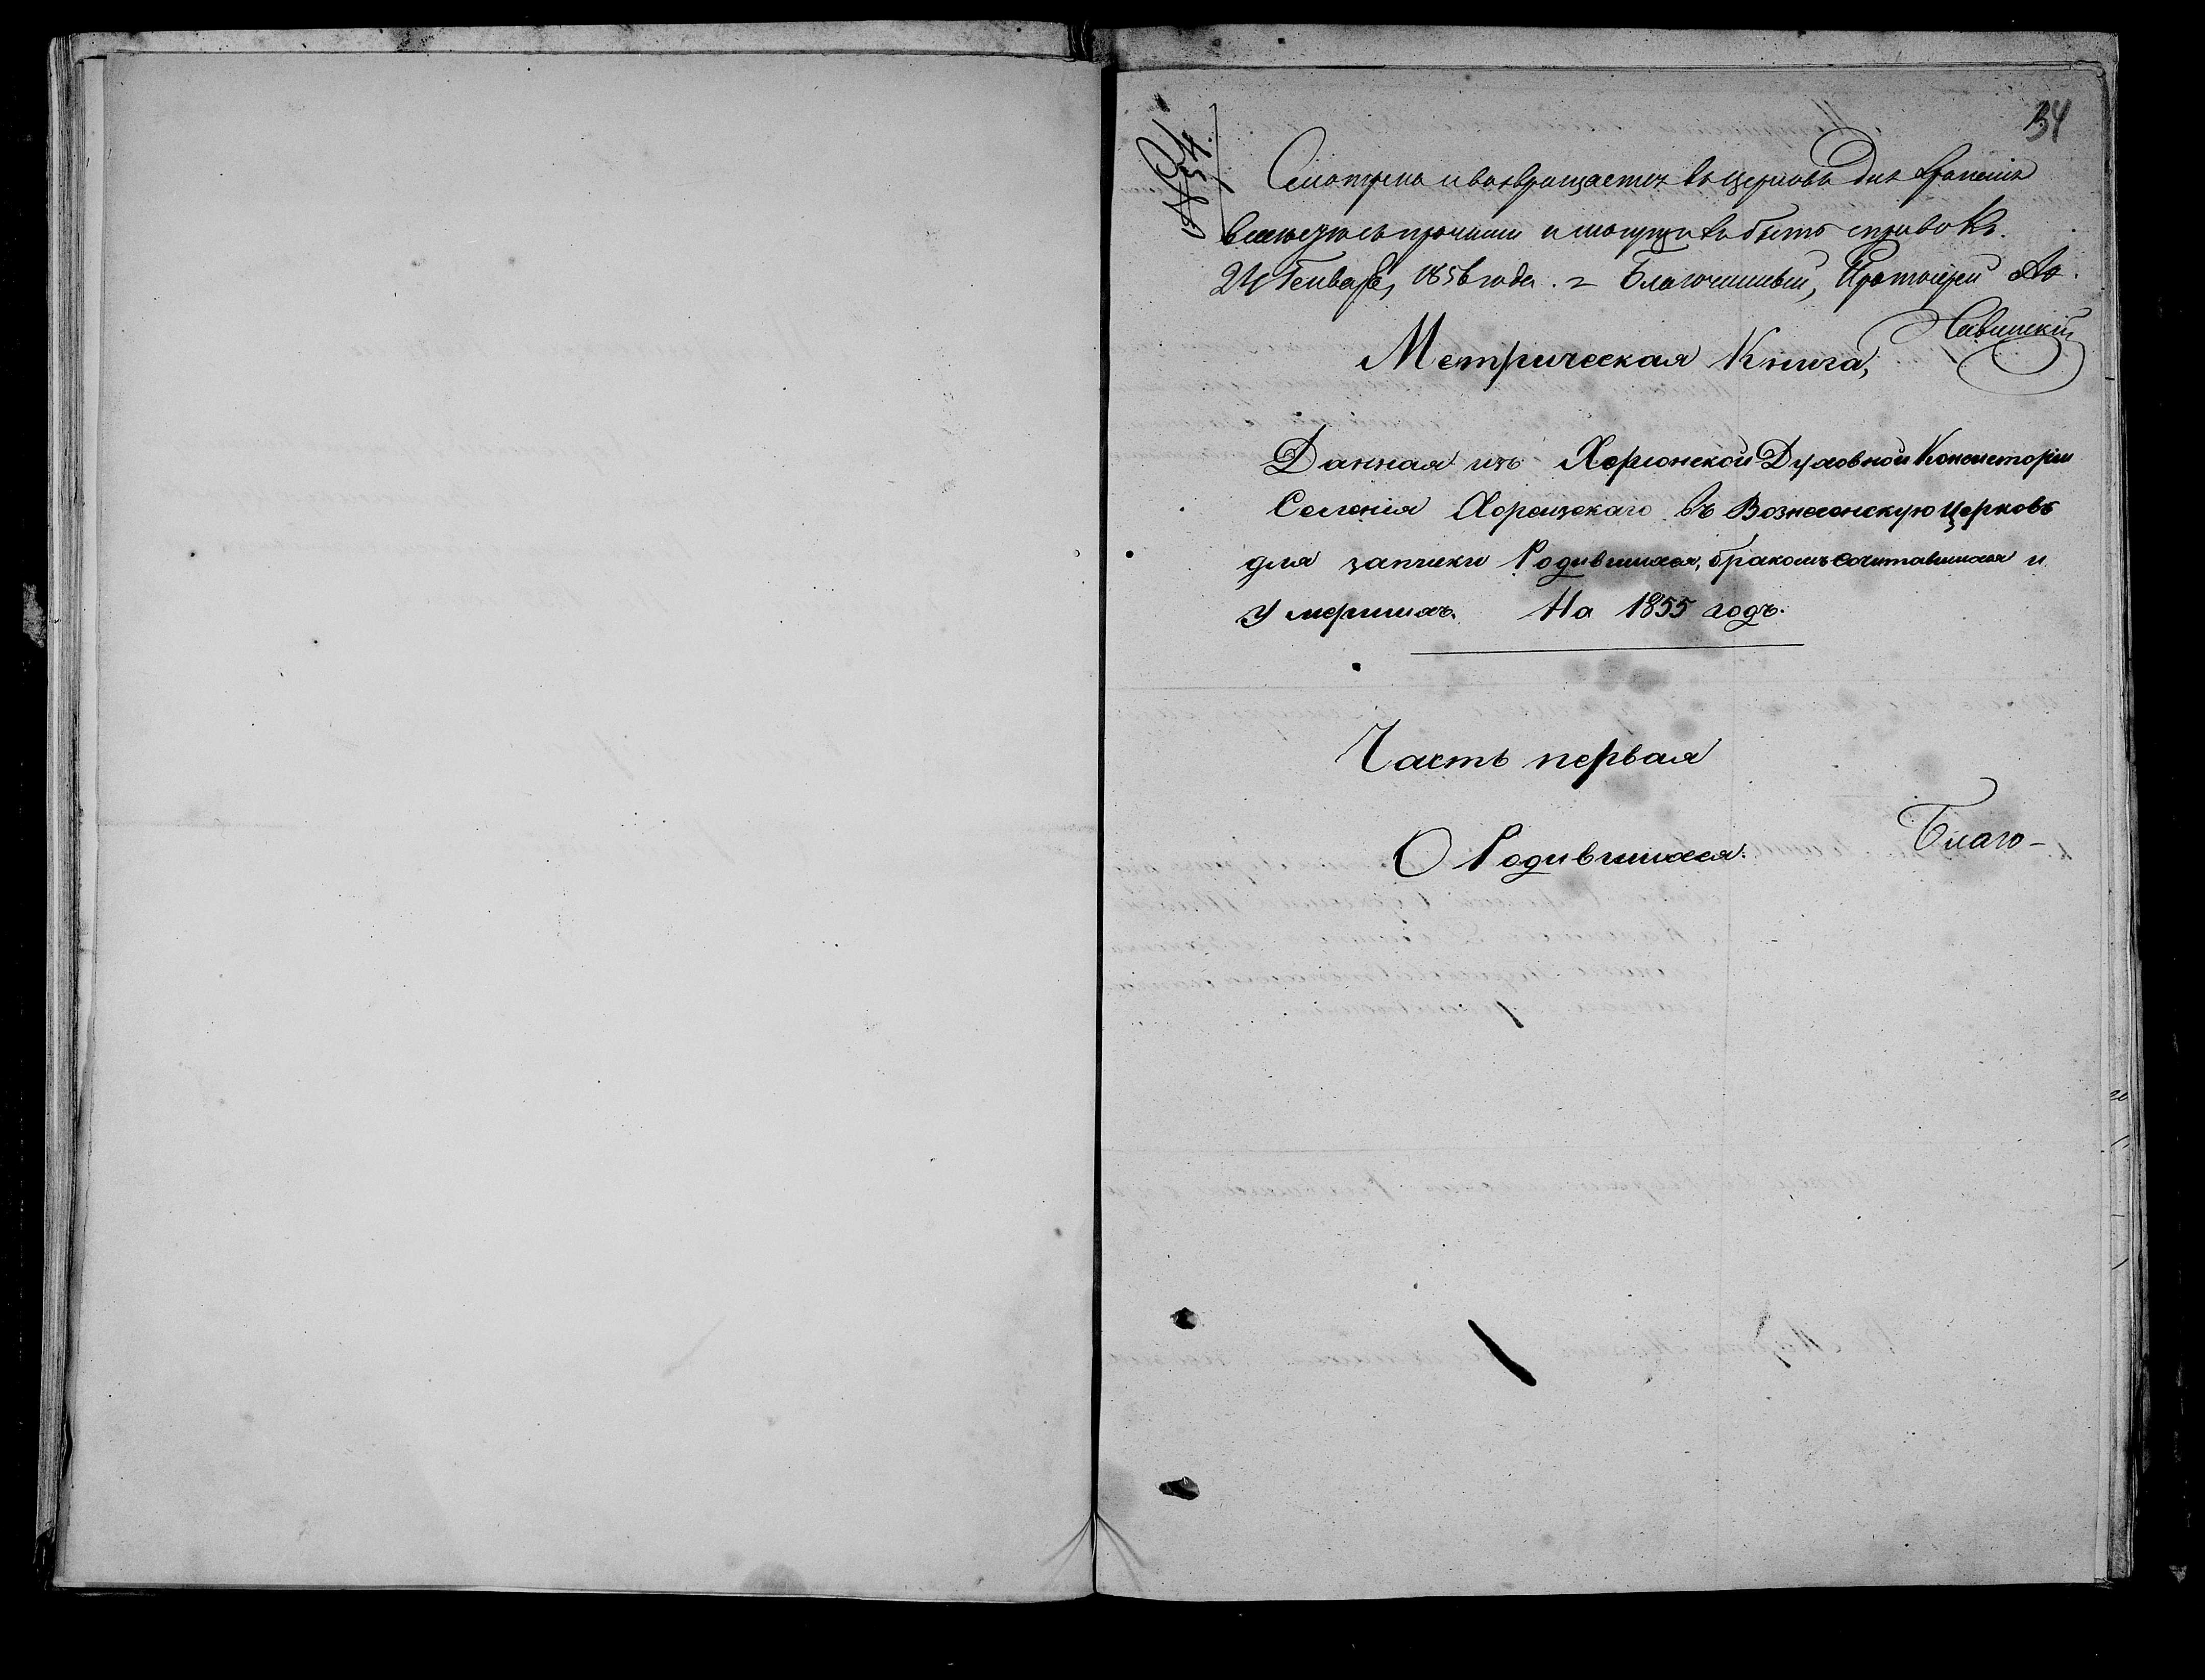 34
№ 54.
Смотрена и возвращается въ церковь для храненія
вместе съ прочими и могущихъ быть справокъ.
24 Генваря, 1856 года. Благочинный, Протоіерей
Савицкій
Метрическая Книга,
Данная изъ Херсонской Духовной Консисторіи
Селенія въ Вознесенскую Церковь
для записки Родившихся, бракомъ сочитавшихся и
Умершихъ. На 1855 годъ.
Часть первая
О Родившихся.
Благо-